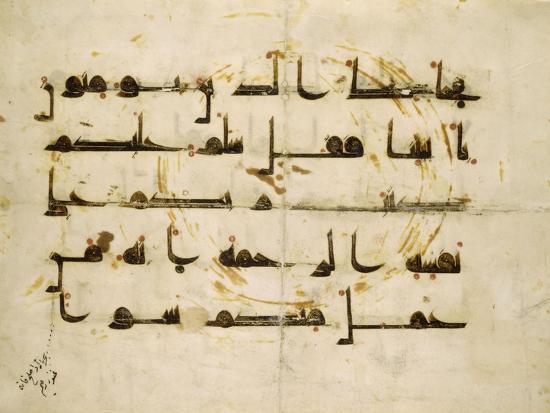 جاك الذين يومنون
بايتنا فقل سلم عليكم
كتب ربكم على
نفسه الرحمة انه من
عمل منكم سوا